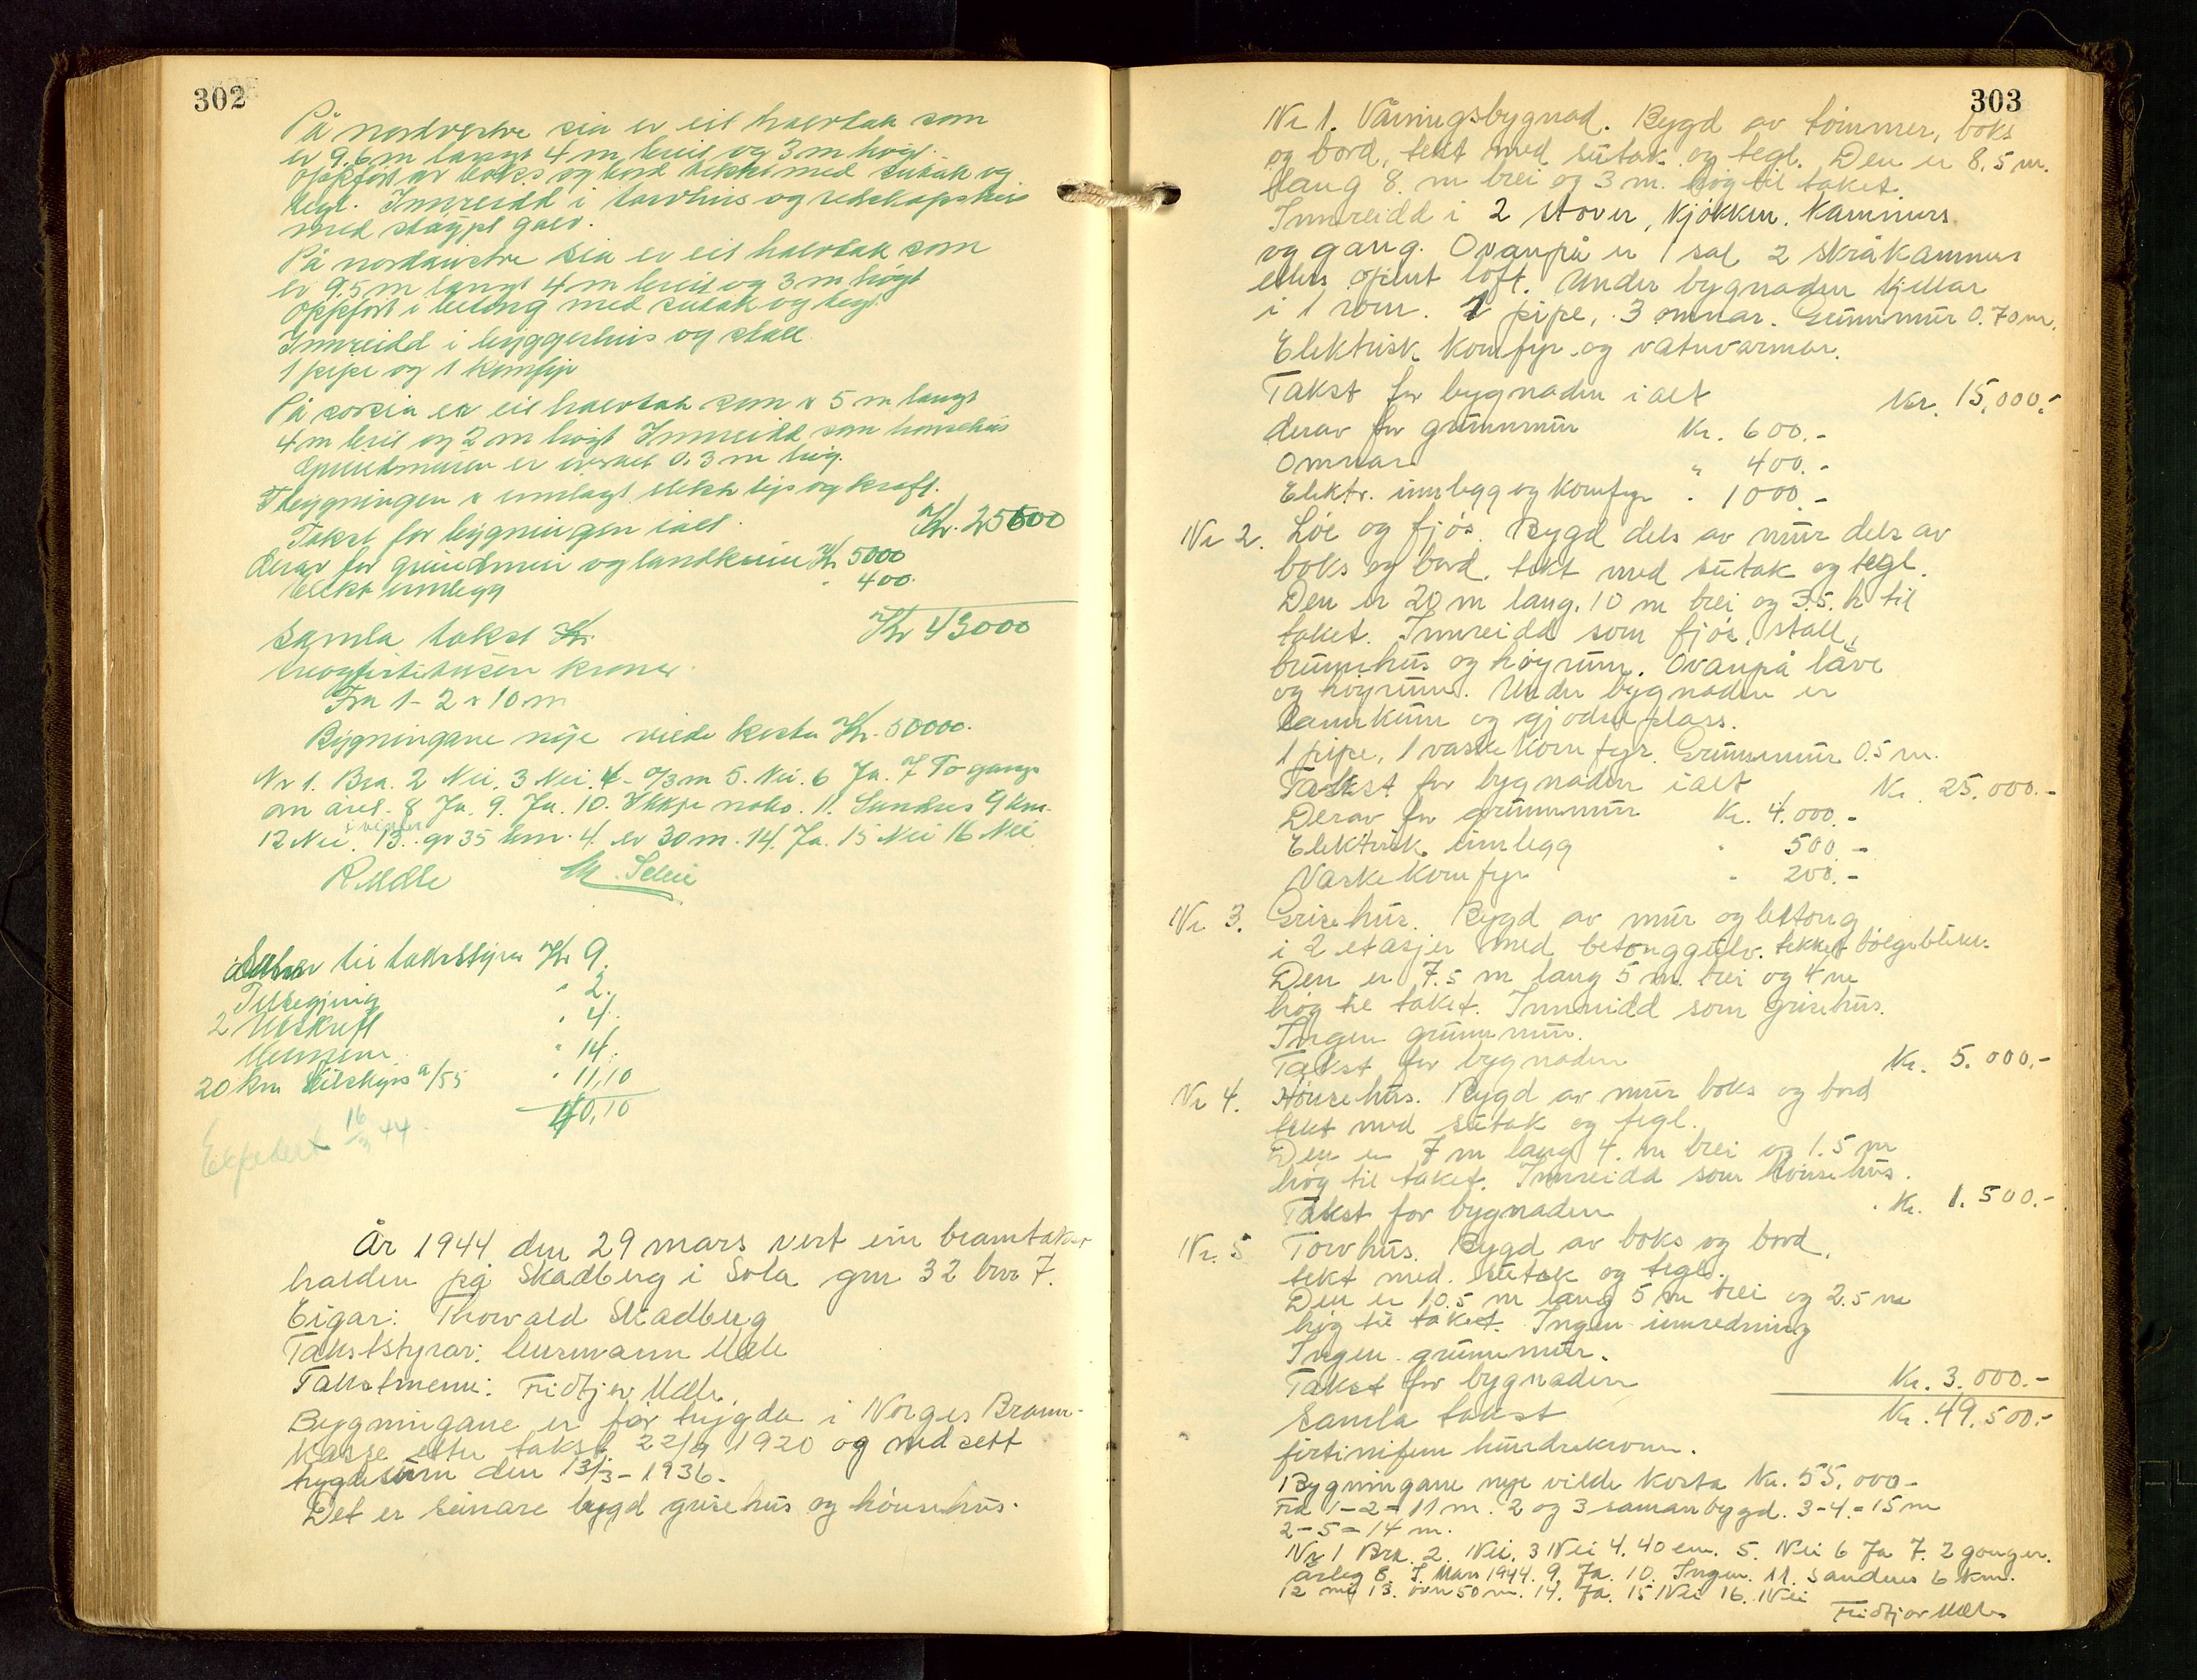 302
På nordvestre sia er eit halvtak som
er 9.6 m langt 4 m breit og 3 m høgt.
Oppført av boks og bord tekkt med sutak og
tegl. Innreidd i torvhus og redskapshus
med støypt golv.
På nordaustre sia er eit halvtak som
er 9.5 m langt 4 m breit og 3 m høgt
Oppført i betong med sutak og tegl.
Innreidd i bryggerhus og stall.
1 pipe og 1 komfyr
På sørsia er eit halvtak som er 5 m langt
4 m breit og 2 m høgt Innreidd som hønsehus
Grundmuren er 0.3 m høg.
I bygningen er innlagt elektr lys og kraft.
Takst for bygningen ialt Kr. 25600
Derav for grundmur og landkum Kr 5000
Elektr innlegg " 400.
Samla takst Kr. Kr 43000
treogfirtitusen kroner.
Fra 1 - 2 er 10 m
Bygningane nye vilde kosta Kr. 50000.
Nr 1. Bra. 2 Nei. 3 Nei. 4 - 0/3 m 5. Nei. 6 Ja. 7 To gangr
om året. 8 Ja. 9. Ja. 10. Ikkje noko. 11. Sandnes 9 km.
12 Nei. 13. 35 km. 4. er 30 m. 14. Ja. 15 Nei 16 Nei
R Mæle M. Selui
til takststyrar Kr 9.
Tilsegjing " 2.
2 Utskrift " 4.
" 14.
20 km bilskyss a/55 " 11,10
40,10
Expedert 16/3 44.
År 1944 den 29 mars vert ein branntakst
halden på Skadberg i Sola gnr 32 bnr 7.
Eigar: Thorvald Skadberg
Takststyrar: lensmann Mæle
Takstmenn: Fridtjov Mæle.
Bygningane er før trygda i Norges Brann-
kasse etter takst 22/9 1920 og nedsett
trygdesum den 13/3 - 1936.
Det er seinare bygd grisehus og hønsehus.
303
Nr 1. Våningsbygnad. Bygd av tømmer, boks
og bord, tekt med sutak og tegl. Den er 8.5 m.
lang 8. m brei og 3 m. høg til taket.
Innreidd i 2 stover, kjøkken, kammers
og gang. Ovanpå er 1 sal 2 skråkammer
ellers opent loft. Under bygnaden kjellar
i 1 rom. 1 pipe, 3 omnar. Grunnmur 0.70 m.
Elektrisk komfyr og vatnvarmar.
Takst for bygnaden ialt Kr. 15.000.-
derav for grunnmur Kr. 600.-
Omnar " 400.-
Elektr. innlegg og komfyr " 1000.-
Nr 2. Løe og fjøs. Bygd dels av mur dels av
boks og bord, tekt med sutak og tegl.
Den er 20 m lang, 10 m brei og 3.5. h til
taket. Innreidd som fjøs, stall,
brunnhus og høyrum. Ovanpå låve
og høyrum. Under bygnaden er
lannkum og gjødselplass.
1 pipe, 1 vaskekomfyr. Grunnmur 0.5 m.
Takst for bygnaden ialt Kr. 25.000.-
Derav for grunnmur Kr. 4.000.-
Elektrisk innlegg " 500.-
Vaskekomfyr " 200.-
Nr 3. Grisehus. Bygd av mur og bettong
i 2 etasjer med betonggulv. tekket bølgeblikk.
Den er 7.5 m lang 5 m. brei og 4 m
høg til taket. Innreidd som grisehus.
Ingen grunnmur.
Takst for bygnaden Kr. 5.000.-
Nr 4. Hønsehus. Bygd av mur boks og bord
tekt med sutak og tegl.
Den er 7 m lang 4. m brei og 1.5 m
høg til taket. Innreidd som hønsehus.
Takst for bygnaden Kr. 1.500.-
Nr. 5 Torvhus. Bygd av boks og bord.
tekt med. sutak og tegl.
Den er 10.5 m lang 5 m brei og 2.5 m
høg til taket. Ingen innredning
Ingen grunnmur.
Takst for bygnaden Kr. 3.000.-
Samla takst Kr. 49.500.-
førtinifem hundrekroner.
Bygningane nye vilde kosta Kr. 55.000-
Fra 1 - 2 = 11 m. 2 og 3 samanbygd. 3 - 4 = 15 m
2 - 5 = 14 m.
Nr 1 Bra. 2. Nei. 3 Nei 4. 40 cm. 5. Nei 6 Ja 7. 2 gonger.
årleg 8. I Mars 1944. 9. Ja. 10. Ingen. 11. Sandnes 6 km.
12 nei 13. over 50 m. 14. Ja. 15 Nei 16. Nei
Fridtjov Mæle